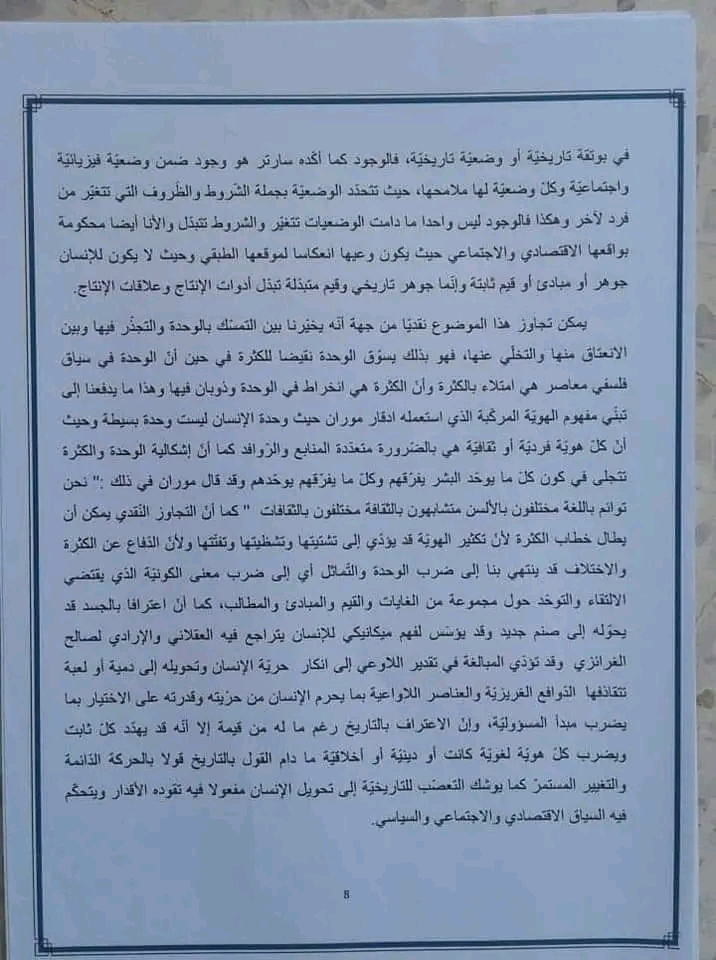 في بوتقة تاريخيّة أو وضعيّة تاريخيّة، فالوجود كما أكّده سارتر هو وجود ضمن وضعيّة فيزيائيّة
واجتماعيّة وكلّ وضعيّة لها ملامحها، حيث تتحدّد الوضعيّة بجملة الشّروط والظّروف التي تتغيّر من
فرد لآخر وهكذا فالوجود ليس واحدا ما دامت الوضعيات تتغيّر والشروط تتبدّل والأنا أيضا محكومة
بواقعها الاقتصادي والاجتماعي حيث يكون وعيها انعكاسا لموقعها الطبقي وحيث لا يكون للإنسان
جوهر أو مبادئ أو قيم ثابتة وإنّما جوهر تاريخي وقيم متبدّلة تبدّل أدوات الإنتاج وعلاقات الإنتاج.
يمكن تجاوز هذا الموضوع نقديّا من جهة أنّه يخيّرنا بين التمسّك بالوحدة والتجذّر فيها وبين
الانعتاق منها والتخلّي عنها، فهو بذلك يسوّق الوحدة نقيضا للكثرة في حين أنّ الوحدة في سياق
فلسفي معاصر هي امتلاء بالكثرة وأنّ الكثرة هي انخراط في الوحدة وذوبان فيها وهذا ما يدفعنا إلى
تبنّي مفهوم الهويّة المركّبة الذي استعمله ادقار موران حيث وحدة الإنسان ليست وحدة بسيطة وحيث
أنّ كلّ هويّة فرديّة أو ثقافيّة هي بالضّرورة متعدّدة المنابع والرّوافد كما أنّ إشكالية الوحدة والكثرة
تتجلى في كون كلّ ما يوحّد البشر يفرّقهم وكلّ ما يفرّقهم يوحّدهم وقد قال موران في ذلك :" نحن
توائم باللغة مختلفون بالألسن متشابهون بالثقافة مختلفون بالثقافات " كما أنّ التجاوز النّقدي يمكن أن
يطال خطاب الكثرة لأنّ تكثير الهويّة قد يؤدّي إلى تشتيتها وتشظيتها وتفتّتها ولأنّ الدّفاع عن الكثرة
والاختلاف قد ينتهي بنا إلى ضرب الوحدة والتّماثل أي إلى ضرب معنى الكونيّة الذي يقتضي
الالتقاء والتوحّد حول مجموعة من الغايات والقيم والمبادئ والمطالب، كما أنّ اعترافا بالجسد قد
يحوّله إلى صنم جديد وقد يؤسّس لفهم ميكانيكي للإنسان يتراجع فيه العقلاني والإرادي لصالح
الغرائزي وقد تؤدّي المبالغة في تقدير اللاوعي إلى انكار حريّة الإنسان وتحويله إلى دمية أو لعبة
تتقاذفها الدّوافع الغريزيّة والعناصر اللاواعية بما يحرم الإنسان من حرّيته وقدرته على الاختيار بما
يضرب مبدأ المسؤوليّة، وإنّ الاعتراف بالتاريخ رغم ما له من قيمة إلا أنّه قد يهدّد كلّ ثابت
ويضرب كلّ هويّة لغويّة كانت أو دينيّة أو أخلاقيّة ما دام القول بالتاريخ قولا بالحركة الدّائمة
والتغيير المستمرّ كما يوشك التعصّب للتاريخيّة إلى تحويل الإنسان مفعولا فيه تقوده الأقدار ويتحكّم
فيه السياق الاقتصادي والاجتماعي والسياسي.
8